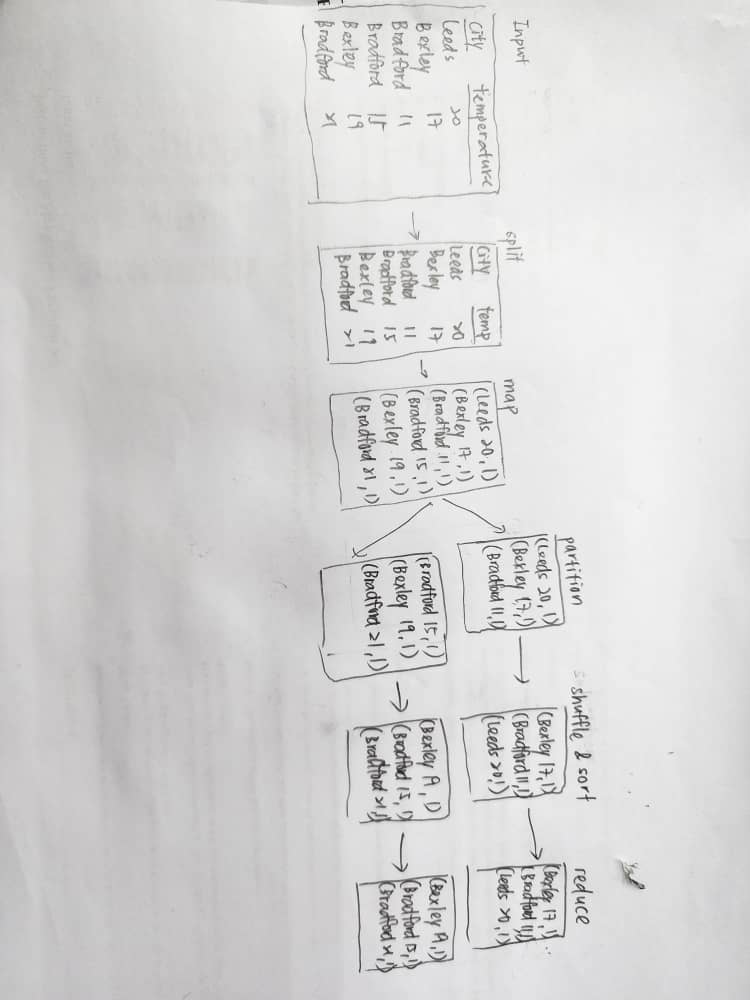 Input
City temperature
Leeds 20
Bexley 17
Bradford 11
Bradford 15
Bexley 19
Bradford 21
split
City temp
Leeds 20
Bexley 17
Bradford 11
Bradford 15
Bexley 19
Bradford 21
map
(Leeds 20,1)
(Bexley 17,1)
(Bradford 11,1)
(Bradford 15,1)
(Bexley 19,1)
(Bradford 21,1)
partition
(Leeds 20,1)
(Bexley 17,1)
(Bradford 11,1)
(Bradford 15,1)
(Bexley 19,1)
(Bradford 21,1)
shuffle & sort
(Bexley 17,1)
(Bradford 11,1)
(Leeds 20,1)
(Bexley 19,1)
(Bradford 15,1)
(Bradford 21,1)
reduce
(Bexley 17,1)
(Bradford 11,1)
(Leeds 20,1)
(Bexley 19,1)
(Bradford 15,1)
(Bradford 21,1)